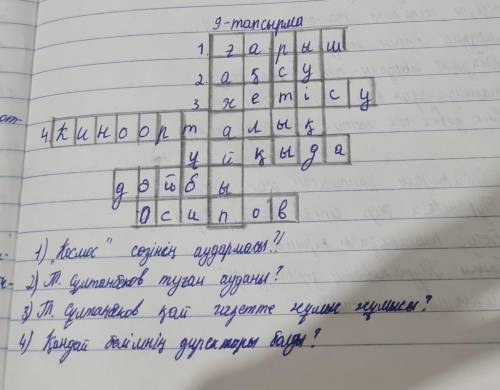 9-тапсырма
1. ғарыш
2. ақсу
3 жетісу
4. Кинoорталық
ұйқыда
дойбы
Осипов
1) „Космос" сөзінің аудармасы?
2) Т. Сұлтанбеков туған ауданы?
3) Т. Сұлтанбеков қай газетте жұмыс жұмысы?
4) Қандай бөлімнің директоры болды?